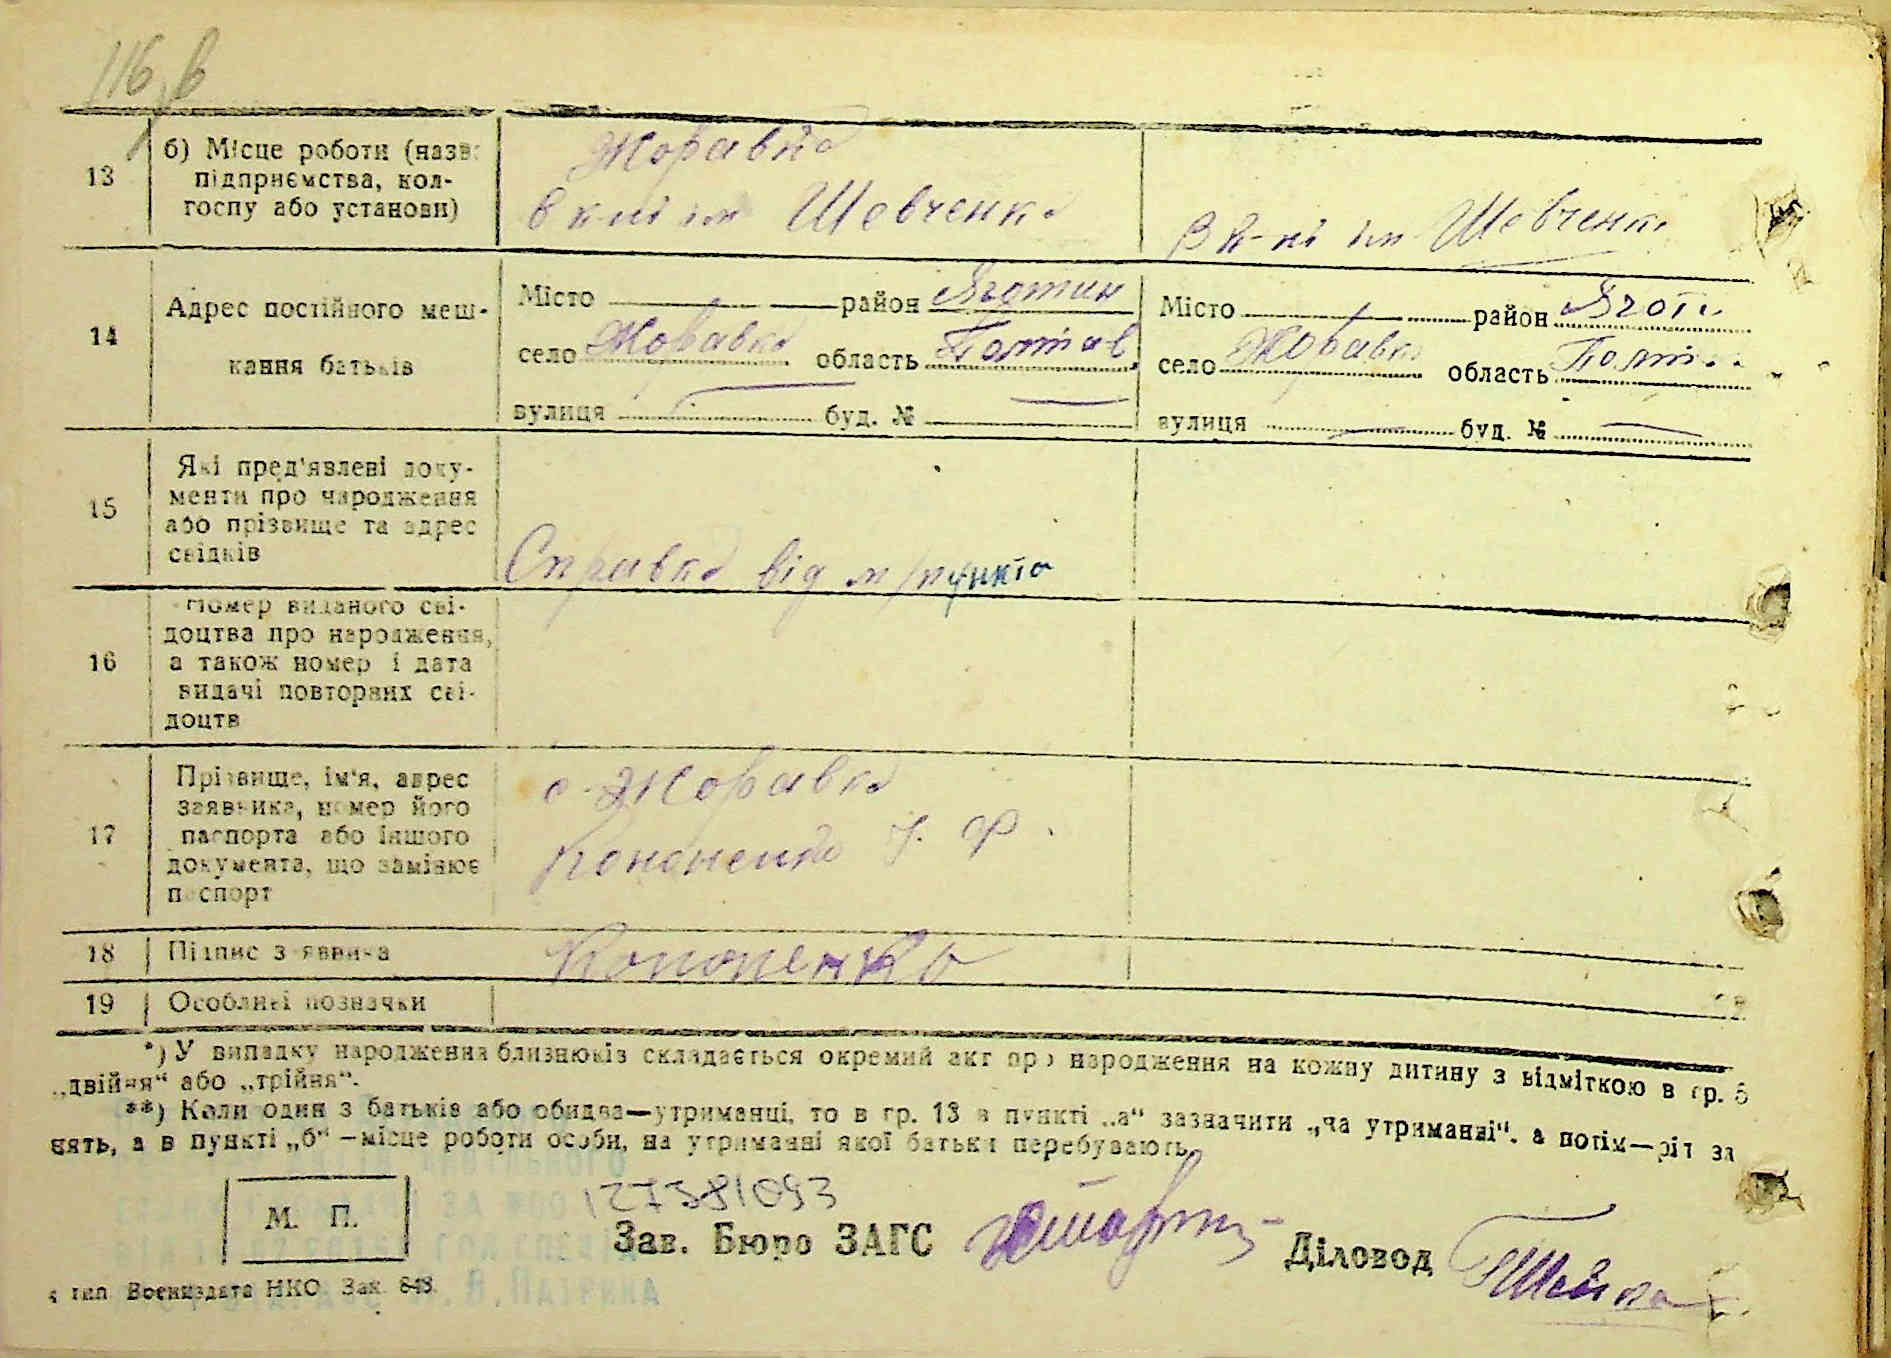 116 в
13 б) Місце роботи (назв
підприємства, кол-
госпу або установи)
Жоравка
в к-пі ім Шевченка
в к-пі ім Шевченка
14 Адрес постійного меш-
кання батьків
Місто район Яготин
село Жоравка область Полтав
вулиця буд. №
Місто район Ягот
село Жоравка область Полт
вулиця буд. №
15 Які пред'явлені доку-
менти про народження
або прізвище та адрес
свідків
Справка від м/пункта
16 Номер виданого сві-
доцтва про народження,
а також номер і дата
видачі повторних сві-
доцтв
17 Прізвище, ім'я, адрес
заявника, номер його
паспорта або іншого
документа, що замінює
паспорт
с. Жоравка
Кононенко Ф.
18 Підпис заявника
Кононенко
19 Особливі позначки
*) У випадку народження близнюків складається окремий акт про народження на кожну дитину з відміткою в гр. 5
„двійня“ або „трійня“.
**) Коли один з батьків або обидва—утриманці, то в гр. 13 в пункті „а“ зазначити „на утриманні“, а потім—рід за
нять, а в пункті „б“—місце роботи особи, на утриманні якої батьки перебувають.
127381093
М. П.
Зав. Бюро ЗАГС
Діловод
тип. Воениздата НКО. Зак. 848.